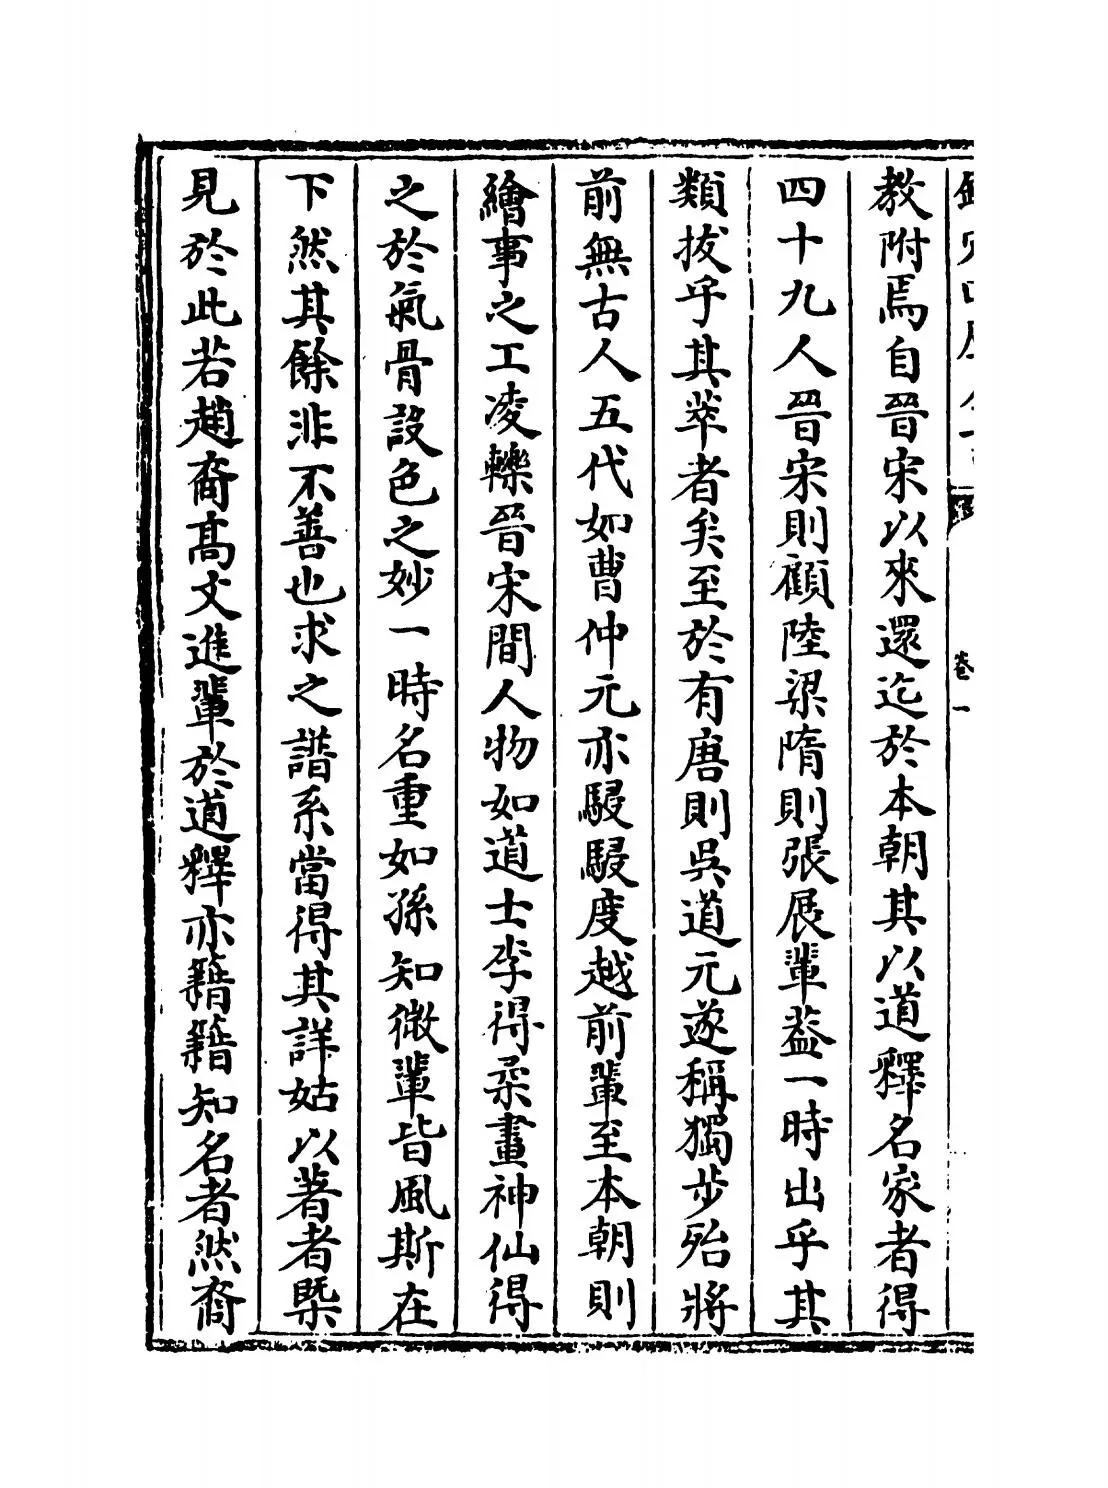 卷一
教附焉自晉宋以來還迄於本朝其以道釋名家者得
四十九人晉宋則顧陸梁隋則張展輩葢一時出乎其
類拔乎其萃者矣至於有唐則吳道元遂稱獨步殆將
前無古人五代如曹仲元亦駸駸度越前輩至本朝則
繪事之工凌轢晉宋間人物如道士李得柔畫神仙得
之於氣骨設色之妙一時名重如孫知微輩皆風斯在
下然其餘非不善也求之譜系當得其詳姑以著者槩
見於此若趙裔高文進輩於道釋亦籍籍知名者然裔